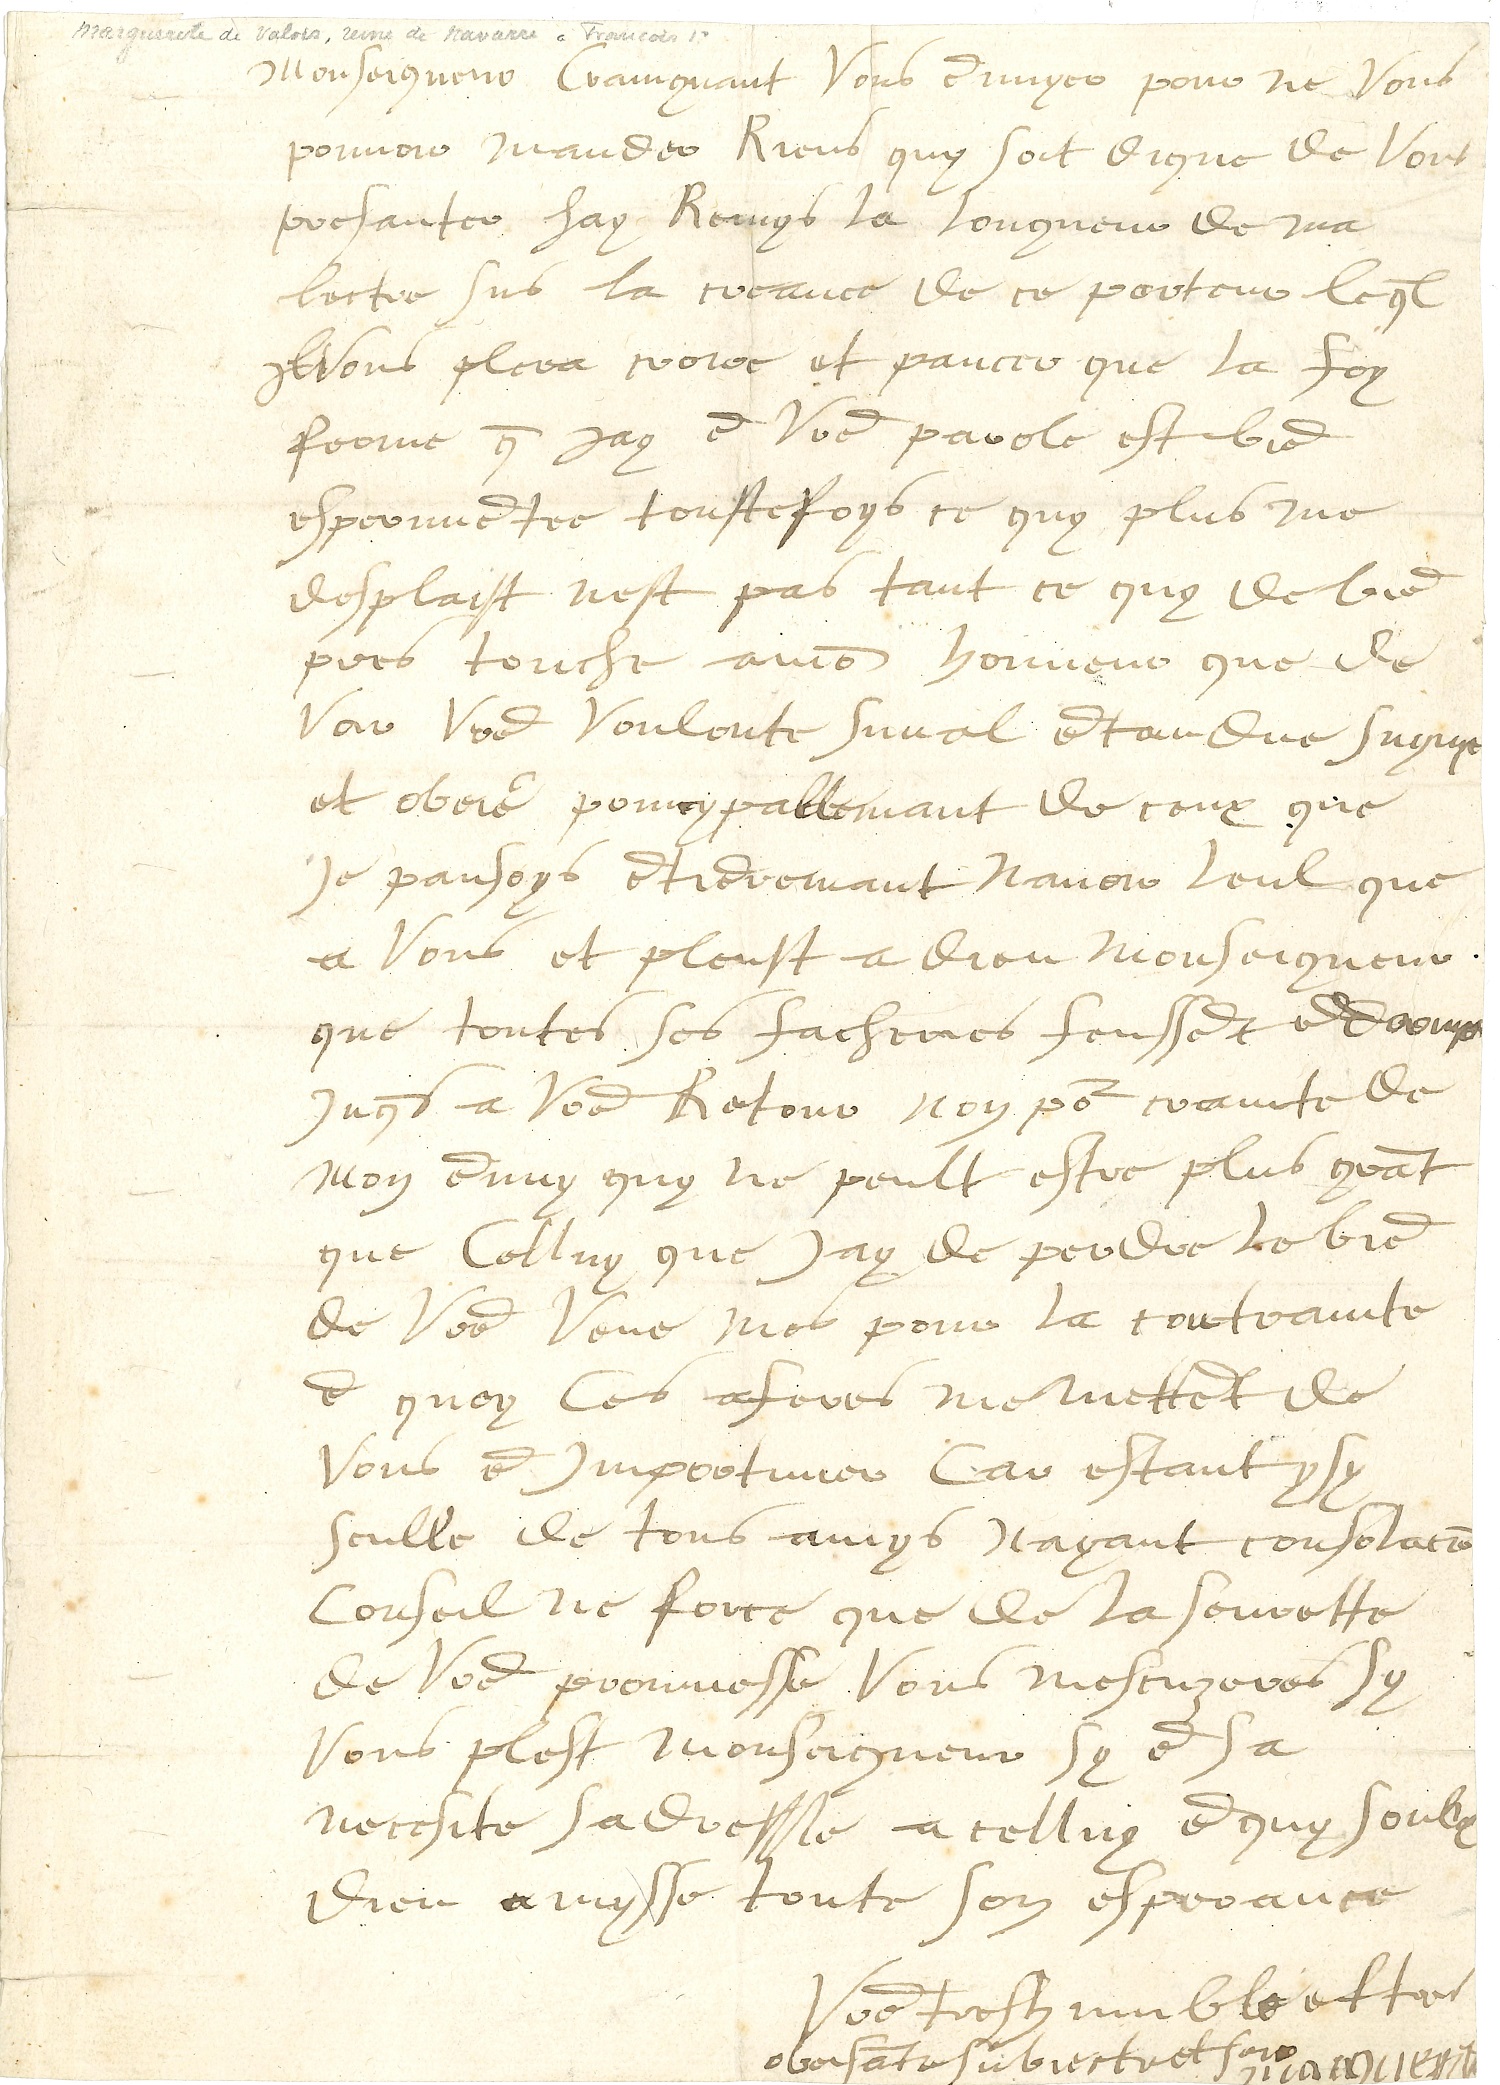 Marguerite de Valois, reine de Navarre à François 1er
Monseigneur Craingnant vous ennuyer pour ne vous
pouvoir mander Riens quy soit digne de vous
presanter Jay Remys la longueur de ma
lectre sus la creance de ce porteur leql
Il vous plera croire et pancer que la foy
ferme q Jay en vre parole est bien
esperimentee touttefoys ce quy plus me
desplaist nest pas tant ce quy de bien
pres touche a mon honneur que de
voir vre voulonte sy mal entandue suyvye
et obeie princypallemant de ceux que
Je pansoys entieremant Navoir leul que
a vous et pleust a dieu Monseigneur
que toutes ses facheries feussent
Juqs a vre Retour non pr crainte de
mon ennuy quy ne peult estre plus grant
que Celluy que Jay de perdre le bien
de vre veue mes pour la contrainte
en quoy Ces aferes me mettent de
vous en Importuner Car estant ysy
seulle de tous amys Nayant consolacion
Conseil ne force que de la seurette
de vre prommesse vous mescuzeres sy
vous plest Monseigneur sy en sa
necesite sadressse a celluy en quy soubz
dieu a mysse toute son esperance
Vre treshumble et tres
obeisante subiecte et seur Marguerite